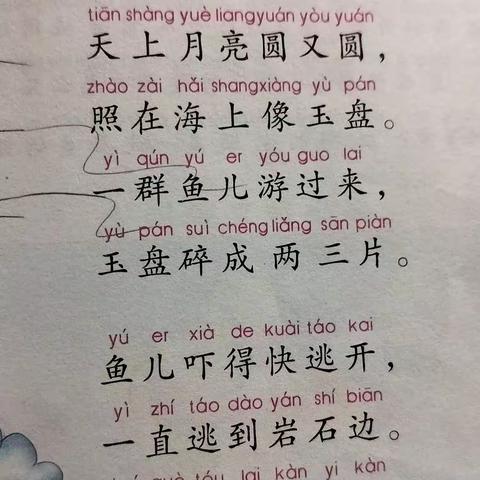 tiān shàng yuè liangyuán yòu yuán
天上月亮圆又圆，
zhào zài hǎi shangxiàng yù pán
照在海上像玉盘。
yì qún yú er yóu guo lai
一群鱼儿游过来，
yù pán suì chéng liǎng sān piàn
玉盘碎成两三片。
yú er xià de kuài táo kai
鱼儿吓得快逃开，
yì zhí táo dào yán shí biān
一直逃到岩石边。
tóu lai kàn yi kàn